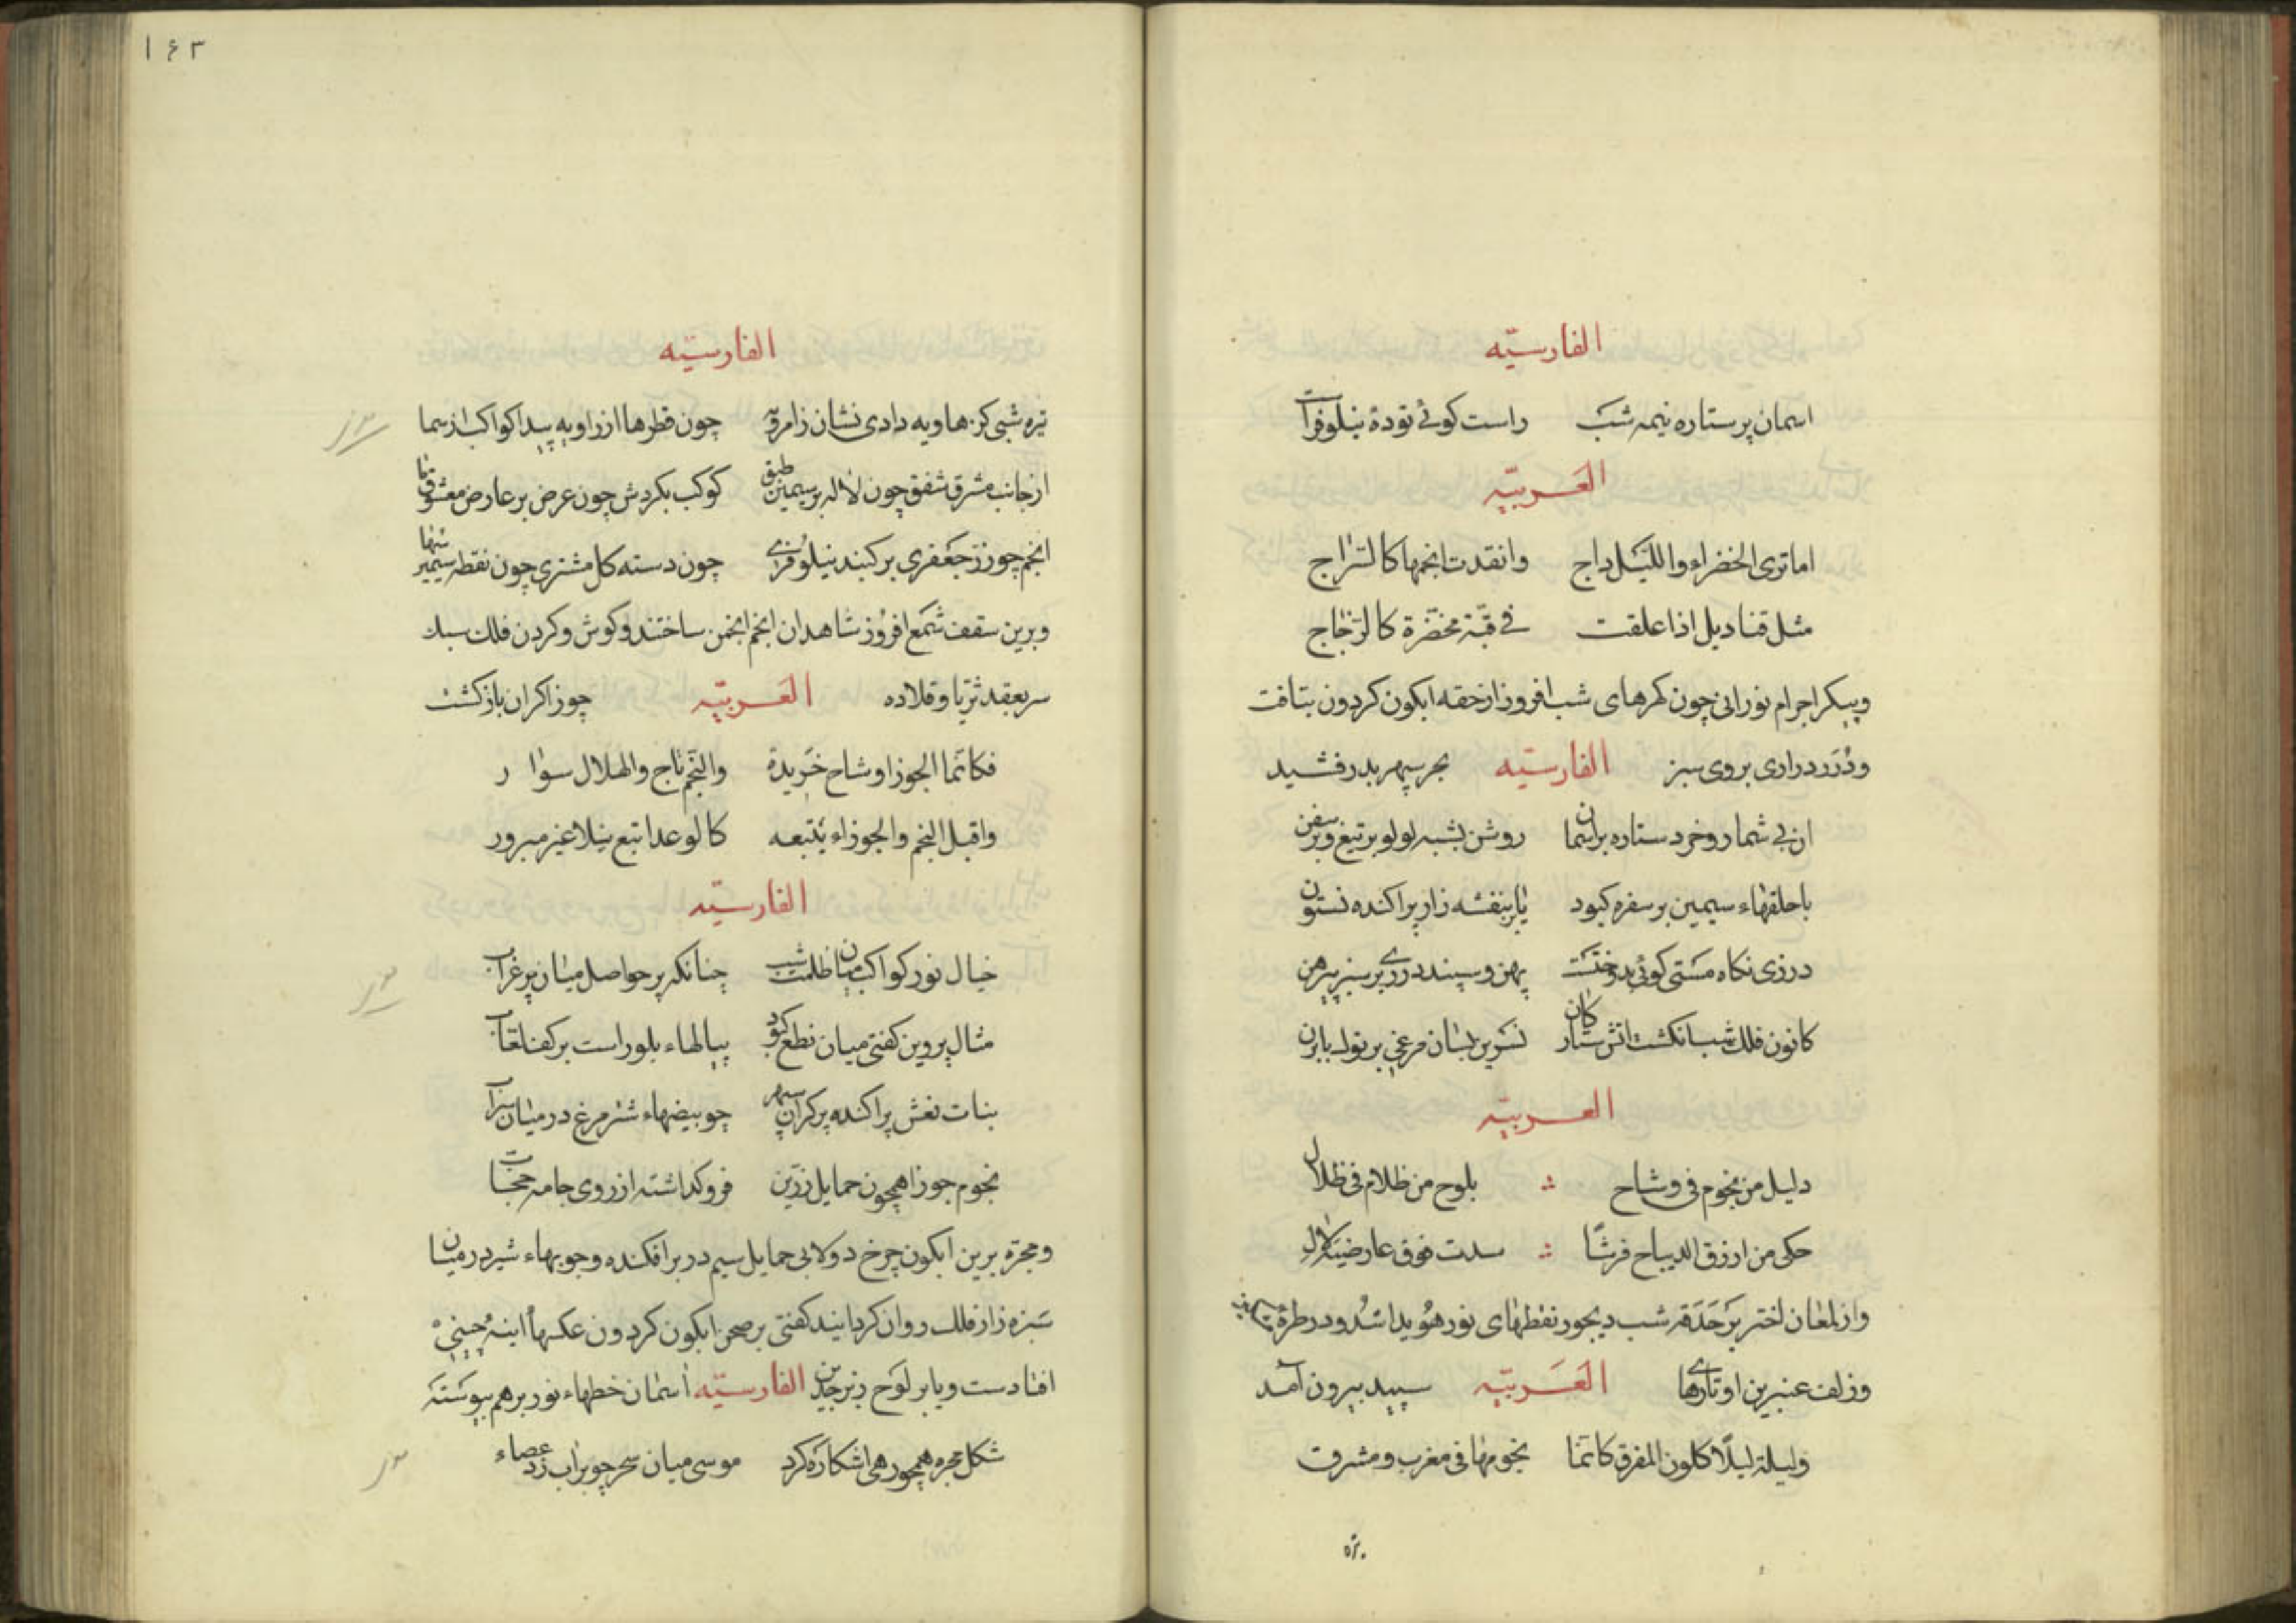 الفارسیّه
اسمان پر ستاره نیمه شب راست کوئی تودۀ نیلوفرات
العَربیّه
اما تری الخضراء واللیل داج وانقدت انجمها کالسّراج
مثل قنادیل اذا علقت فی قبّة مخضّرة کالزّجاج
وپیکر اجرام نورانی چون کهرهای شب افروز از حقه ابکون کردون بتافت
ودُرَر دراری بروی سبز الفارسیّه بحر سپهر بدرفشید
ان بی شمار و خرد ستاره بر اسمان روشن بشبه لولو بر تیغ و بر سفن
با حلقهاء سیمین بر سفره کبود یا بر بنفشه زار پراکنده نسترون
درزی نکاه مستی کوئی بدوختست پهن و سپند دری بر سبز پیرهن
کانون فلک شب انکشت اتش ستارکان نسرین بسان مرغی بر نوک بابزن
العربیّه
دلیل من نجوم فی وشاح یلوح من ظلام فی ظلال
حکی من ازرق الدیباج فرشًا سدت فوق عارضیه لال
واز لمعان اختر بر حَدَقه شب دیجور نقطهای نور هُویدا شُد و در طرۀ
وزلف عنبرین او تارهای العَربیّه سپید بیرون آمد
ولیلة لیلًا کلون المفرق کانّما نجومها فی مغرب ومشرق
۱۴۳
الفارسیّه
تیره شبی کز هاویه دادی نشان زامرو چون قطرها از زاویه پیدا کواکب از سما
از جانب مشرق شفق چون لاله بر سیمین طبق کوکب بکردش چون عرق بر عارض معشوق ما
انجم چو زر جعفری بر کنبد نیلوفری چون دسته کل مشتری چون نقطه سیمین سها
وبرین سقف شمع افروز شاهدان انجم انجمن ساختند و کوش و کردن فلک سبک
سر بعقد ثریا و قلاده العَربیّه جوزا کران باز کشت
فکانّما الجوزا وشاح خریدة والنّجم تاج والهلال سوار
واقبل النجم والجوزاء یتبعه کالوعد اتبع نیلا غیر مبرور
الفارسیّه
خیال نور کواکب میان ظلمت شب چنانکه پر حواصل میان پر غراب
مثال پروین کفتی میان نطع کبود پیالهاء بلور است بر کف لعّاب
بنات نعش پراکنده بر کران سپهر چو بیضهاء شتر مرغ در میان سراب
نجوم جوزا همچون حمایل زرّین فرو کذاشته از روی جامه حجاب
ومجرّه برین ابکون چرخ دولابی حمایل سیم در بر افکنده و جویهاء شیر در میان
سَبزه زار فلک روان کردانید کفتی بر صحن ابکون کردون عکسها اینه چینی
افتادست و یا بر لَوح زبرجدین الفارسیّه اسمان خطهاء نور برهم پیوسته
شکل مجره همچو رهی اشکاره کرد موسی میان سحر چو بر اب زد عصاء